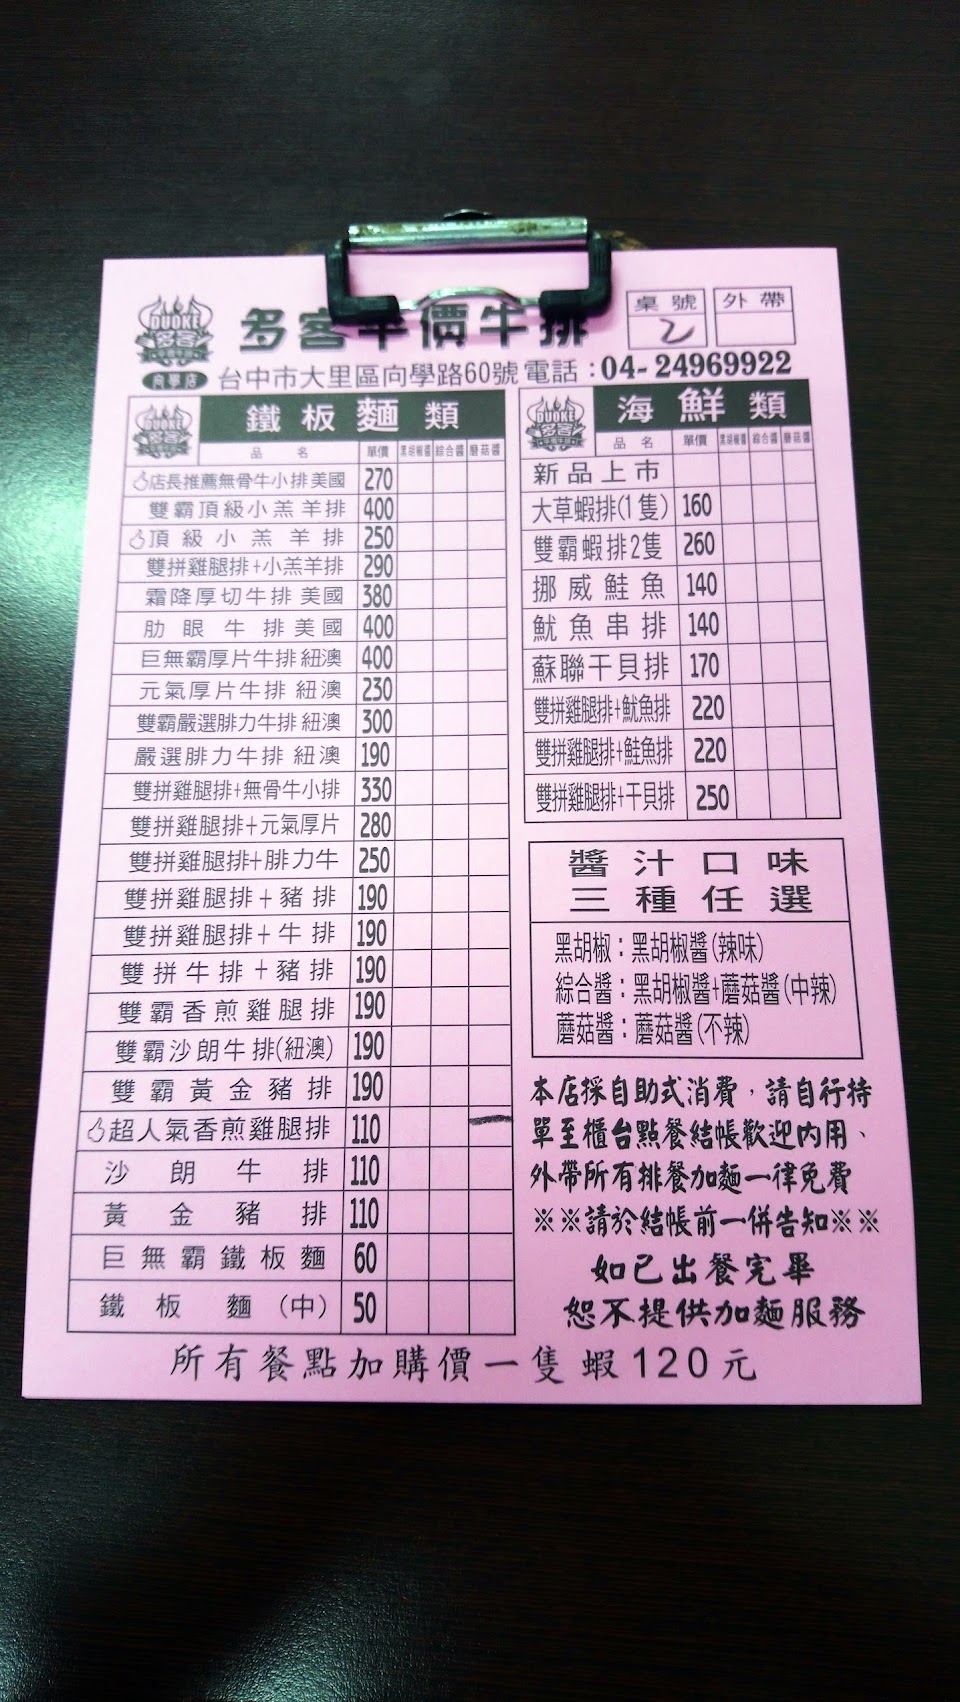 DUOKE
多客
多客平價牛排
桌號
2
外帶
向學店
台中市大里區向學路60號 電話：04-24969922
DUOKE
多客
鐵板麵類
品名 單價 黑胡椒醬 綜合醬 蘑菇醬
店長推薦無骨牛小排美國 270
雙霸頂級小羔羊排 400
頂級小羔羊排 250
雙拼雞腿排+小羔羊排 290
霜降厚切牛排美國 380
肋眼牛排美國 400
巨無霸厚片牛排紐澳 400
元氣厚片牛排 紐澳 230
雙霸嚴選腓力牛排 紐澳 300
嚴選腓力牛排 紐澳 190
雙拼雞腿排+無骨牛小排 330
雙拼雞腿排+元氣厚片 280
雙拼雞腿排+腓力牛 250
雙拼雞腿排+豬排 190
雙拼雞腿排+牛排 190
雙拼牛排+豬排 190
雙霸香煎雞腿排 190
雙霸沙朗牛排(紐澳) 190
雙霸黃金豬排 190
超人氣香煎雞腿排 110
沙朗牛排 110
黃金豬排 110
巨無霸鐵板麵 60
鐵板麵(中) 50
DUOKE
多客
海鮮類
品名 單價 黑胡椒醬 綜合醬 蘑菇醬
新品上市
大草蝦排(1隻) 160
雙霸蝦排2隻 260
挪威鮭魚 140
魷魚串排 140
蘇聯干貝排 170
雙拼雞腿排+魷魚排 220
雙拼雞腿排+鮭魚排 220
雙拼雞腿排+干貝排 250
醬汁口味
三種任選
黑胡椒：黑胡椒醬(辣味)
綜合醬：黑胡椒醬+蘑菇醬(中辣)
蘑菇醬：蘑菇醬(不辣)
本店採自助式消費，請自行持
單至櫃台點餐結帳歡迎內用、
外帶所有排餐加麵一律免費
※※請於結帳前一併告知※※
如已出餐完畢
恕不提供加麵服務
所有餐點加購價一隻蝦120元